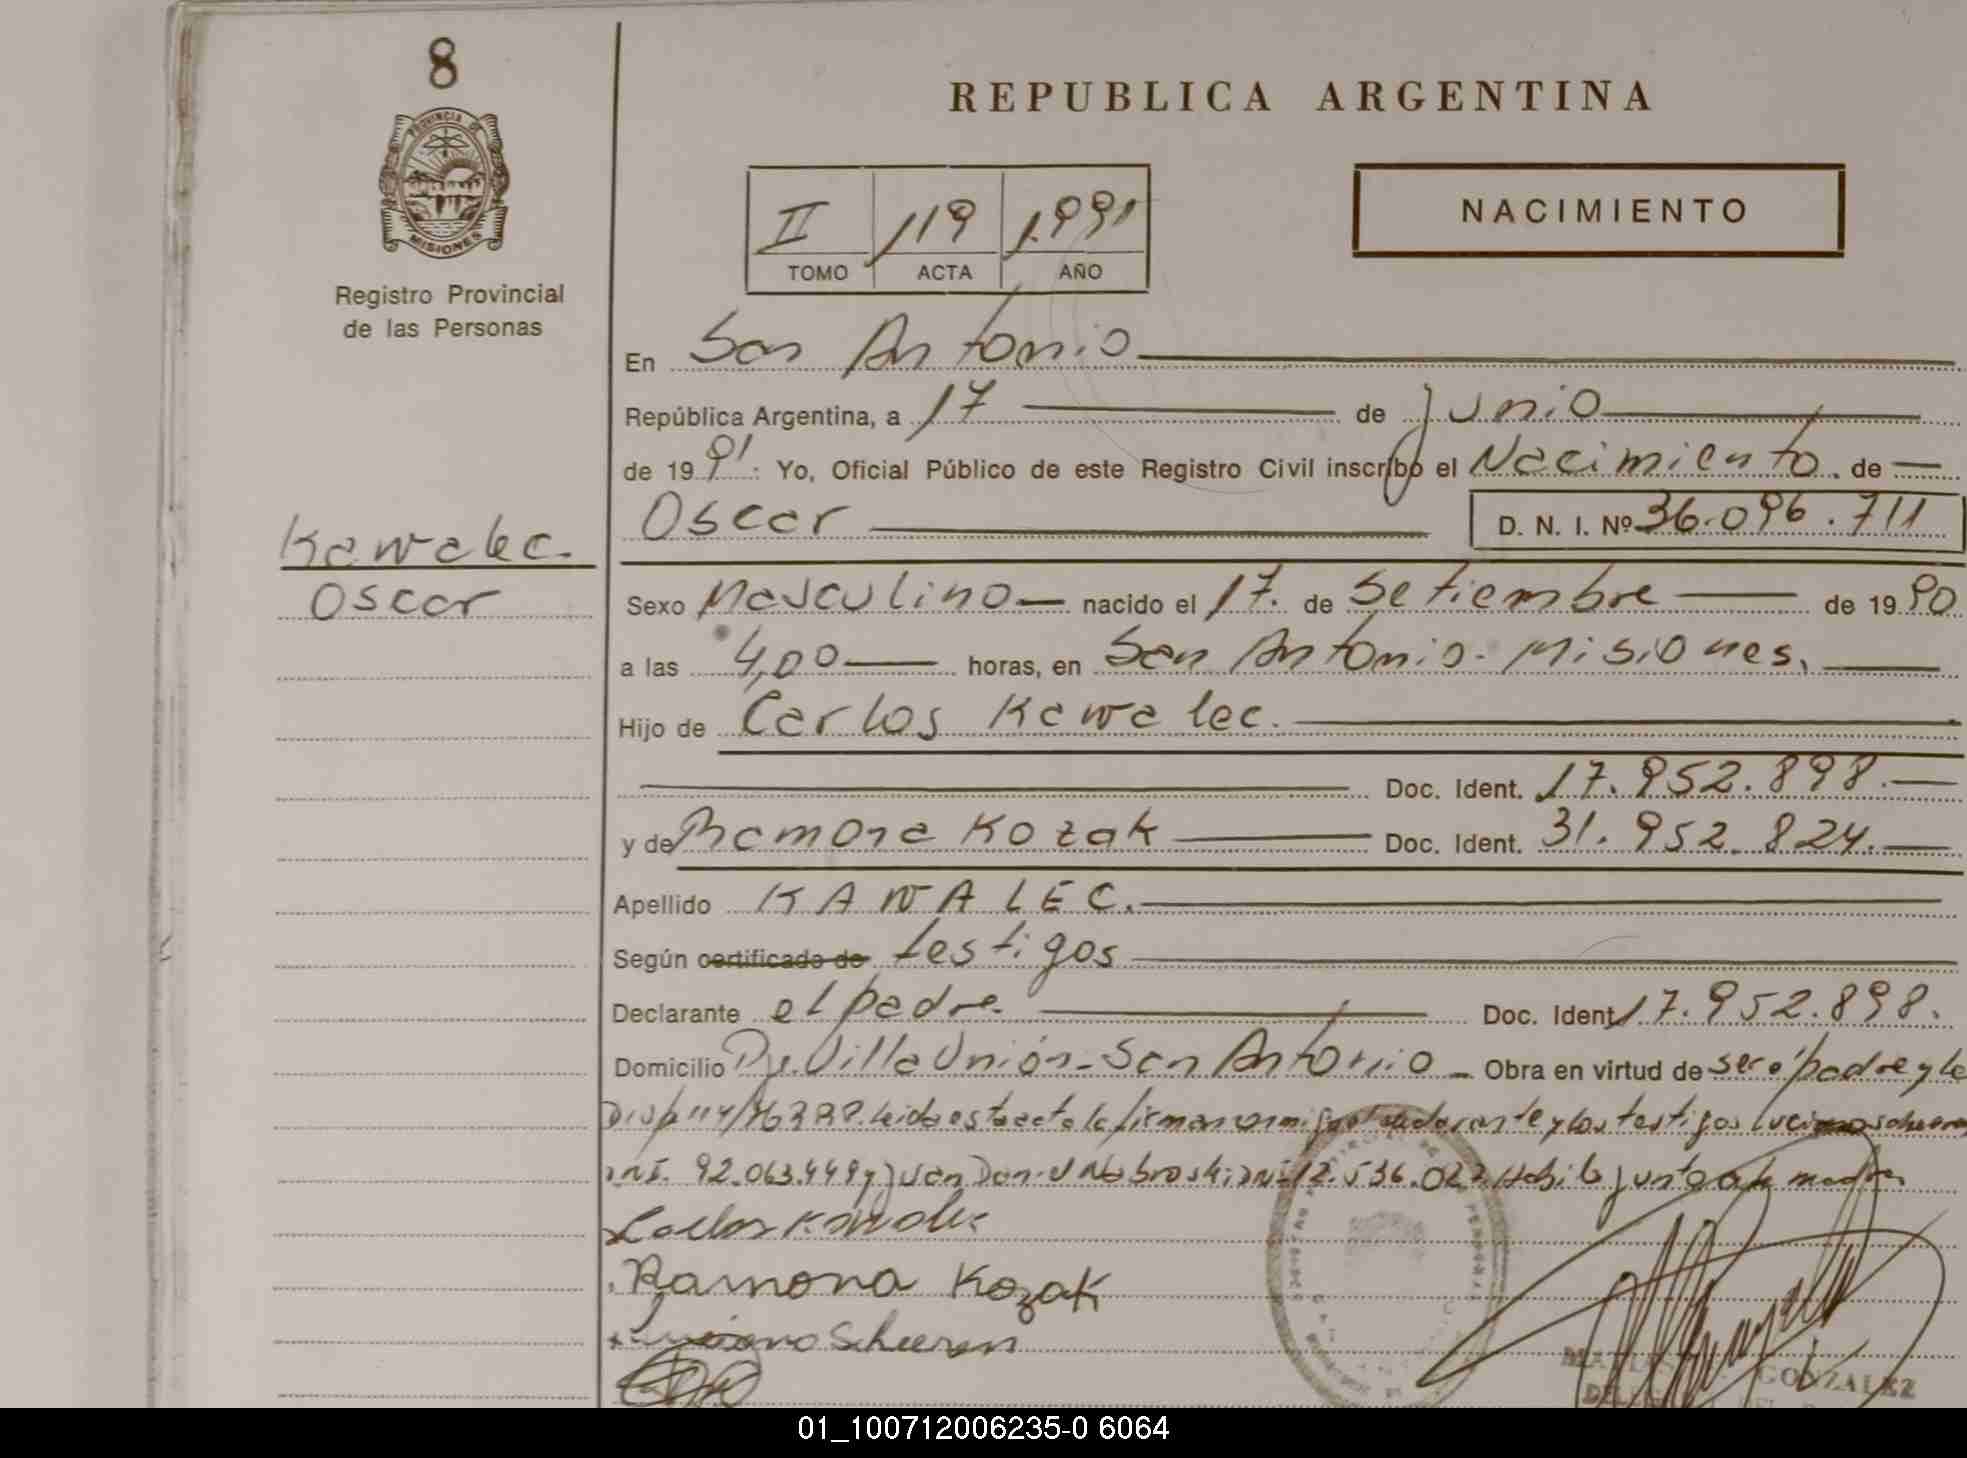 8
PROVINCIA DE
MISIONES
Registro Provincial
de las Personas
REPUBLICA ARGENTINA
II 119 1.991
TOMO ACTA AÑO
NACIMIENTO
En San Antonio
República Argentina, a 17 de junio
de 1991: Yo, Oficial Público de este Registro Civil inscribo el Nacimiento de
Oscar D. N. I. Nº 36.096.711
Kawalec.
Oscar
Sexo Masculino nacido el 17. de Setiembre de 1990
a las 4,00 horas, en San Antonio - Misiones,
Hijo de Carlos Kawalec.
Doc. Ident. 17.952.898.
y de Ramona Kozak Doc. Ident. 31.952.824.
Apellido KAWALEC.
Según certificado de testigos
Declarante el padre. Doc. Ident 17.952.898.
Domicilio Villa Unión - San Antonio - Obra en virtud de ser padre y la
Leida esta acta la firman conmigo el declarante y los testigos
92.063.449 y Juan 12.536.027. junto a la madre
Ramona Kozak
Luciano Scheeren
GONZALEZ
01_100712006235-0 6064